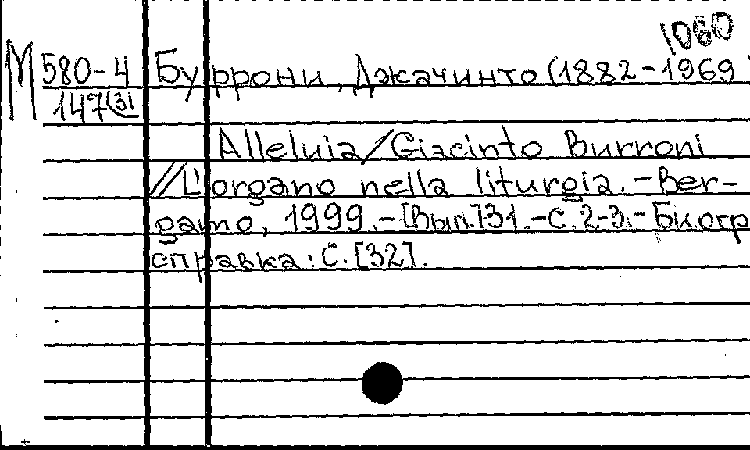 1060
М 580-4 Буррони, Джачинто (1882-1969)
147(3)
Alleluia/Giacinto Burroni
//L'organo nella liturgia.-Ber-
gamo, 1999.-[Вып.]31.-С.2-3.-Биогр
справка: С.[32].